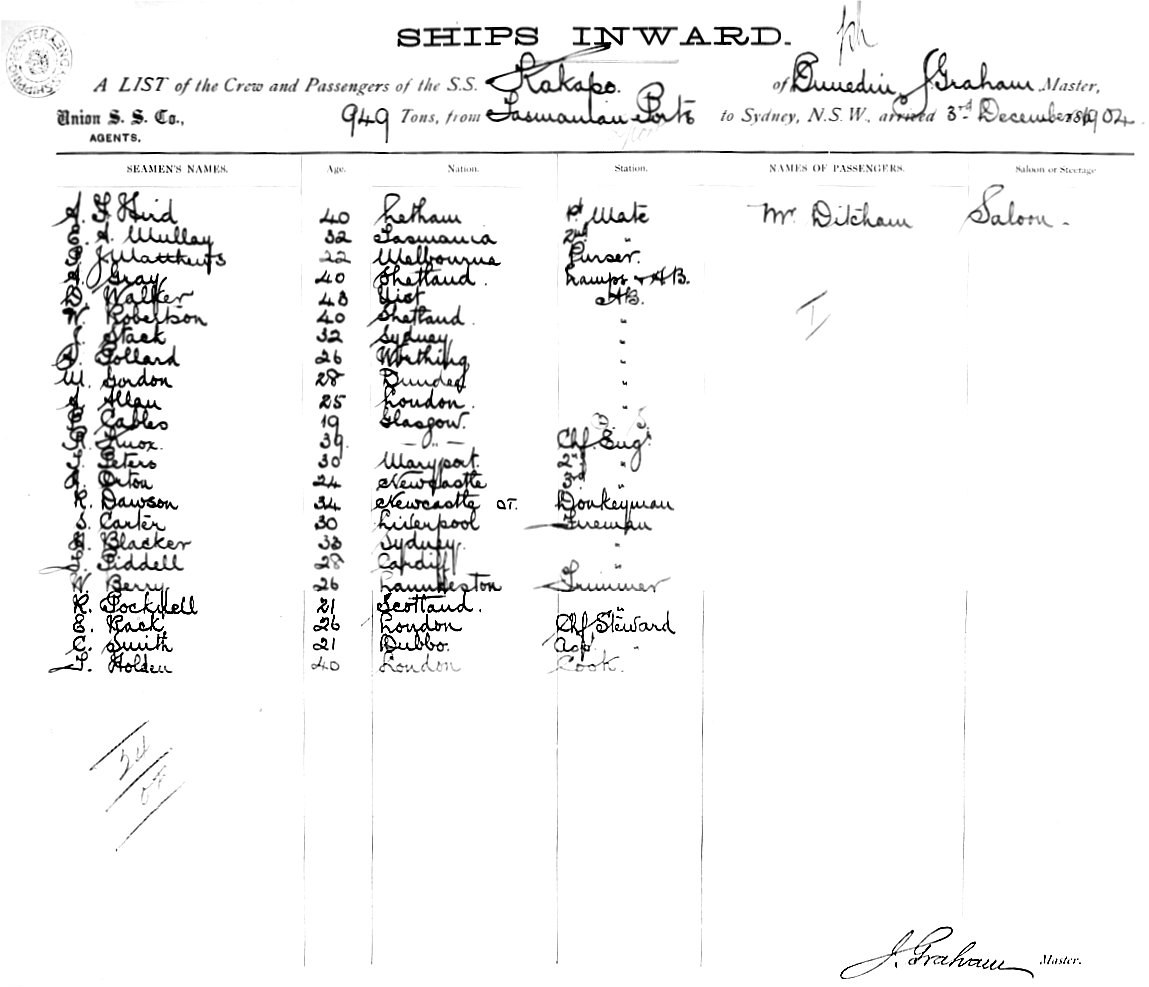 SHIPS INWARD.
A LIST of the Crew and Passengers of the S.S. Kakapo. of Dunedin, J Graham Master,
Union S. S. Co., 949 Tons, from Tasmanian Ports to Sydney, N.S.W., arrived 3rd December 1904
AGENTS.
SEAMEN'S NAMES. Age. Nation. Station. NAMES OF PASSENGERS. Saloon or Steerage
A. F. 40 1st Mate Mr. Ditcham Saloon.
E. A. Mullay 32 Tasmania 2nd "
J Matthews 22 Melbourne Purser.
A. Gray 40 Shetland. Lamps & AB.
D. Walker 43 AB.
W. Robertson 40 Shetland. "
J. Stack 32 Sydney "
Pollard 26 Worthing "
W. Gordon 28 Dundee "
A. Allan 25 London. "
Cables 19 Glasgow. O. S.
R. Knox. 39 — " — Chf Engr
Peters 30 Maryport. 2nd "
A. Orton 24 Newcastle 3rd "
R. Dawson 34 Newcastle OT. Donkeyman
S. Carter 30 Liverpool Fireman
Blacker 33 Sydney. "
Liddell 28 Cardiff "
W. Berry 26 Launceston Trimmer
R. 21 Scotland. "
E. Rack 26 London Chf Steward
C. Smith 21 Dubbo. "
T. Holden 40 London Cook.
J. Graham Master.